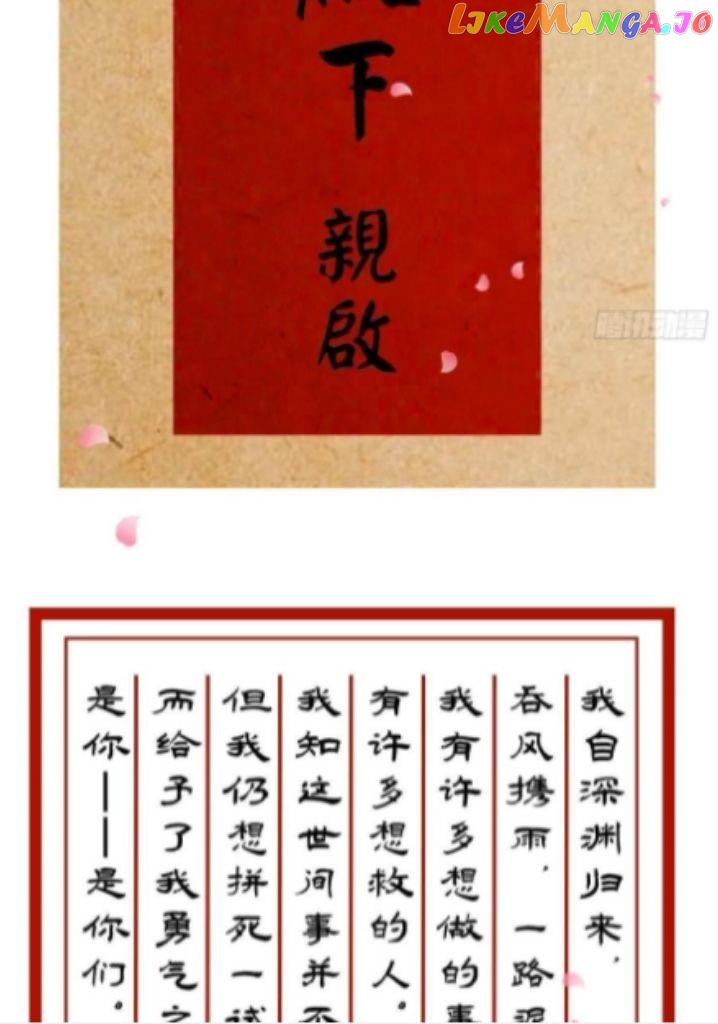 LIKEMANGA.IO
下 親啟
腾讯动漫
我自深渊归来,
吞风携雨,一路泥
我有许多想做的事
有许多想救的人。
我知这世间事并不
但我仍想拼死一试
而给予了我勇气之
是你——是你们。